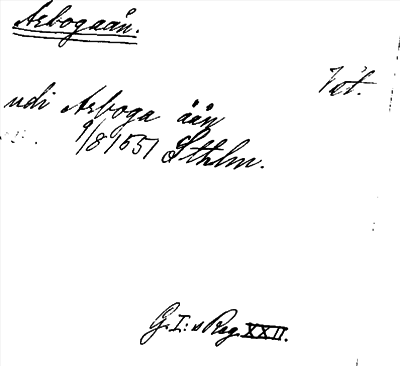 Arbogaån.
Vät.
udi Arboga åån
9/8 1551 Sthlm.
G. I:s Reg. XXII.